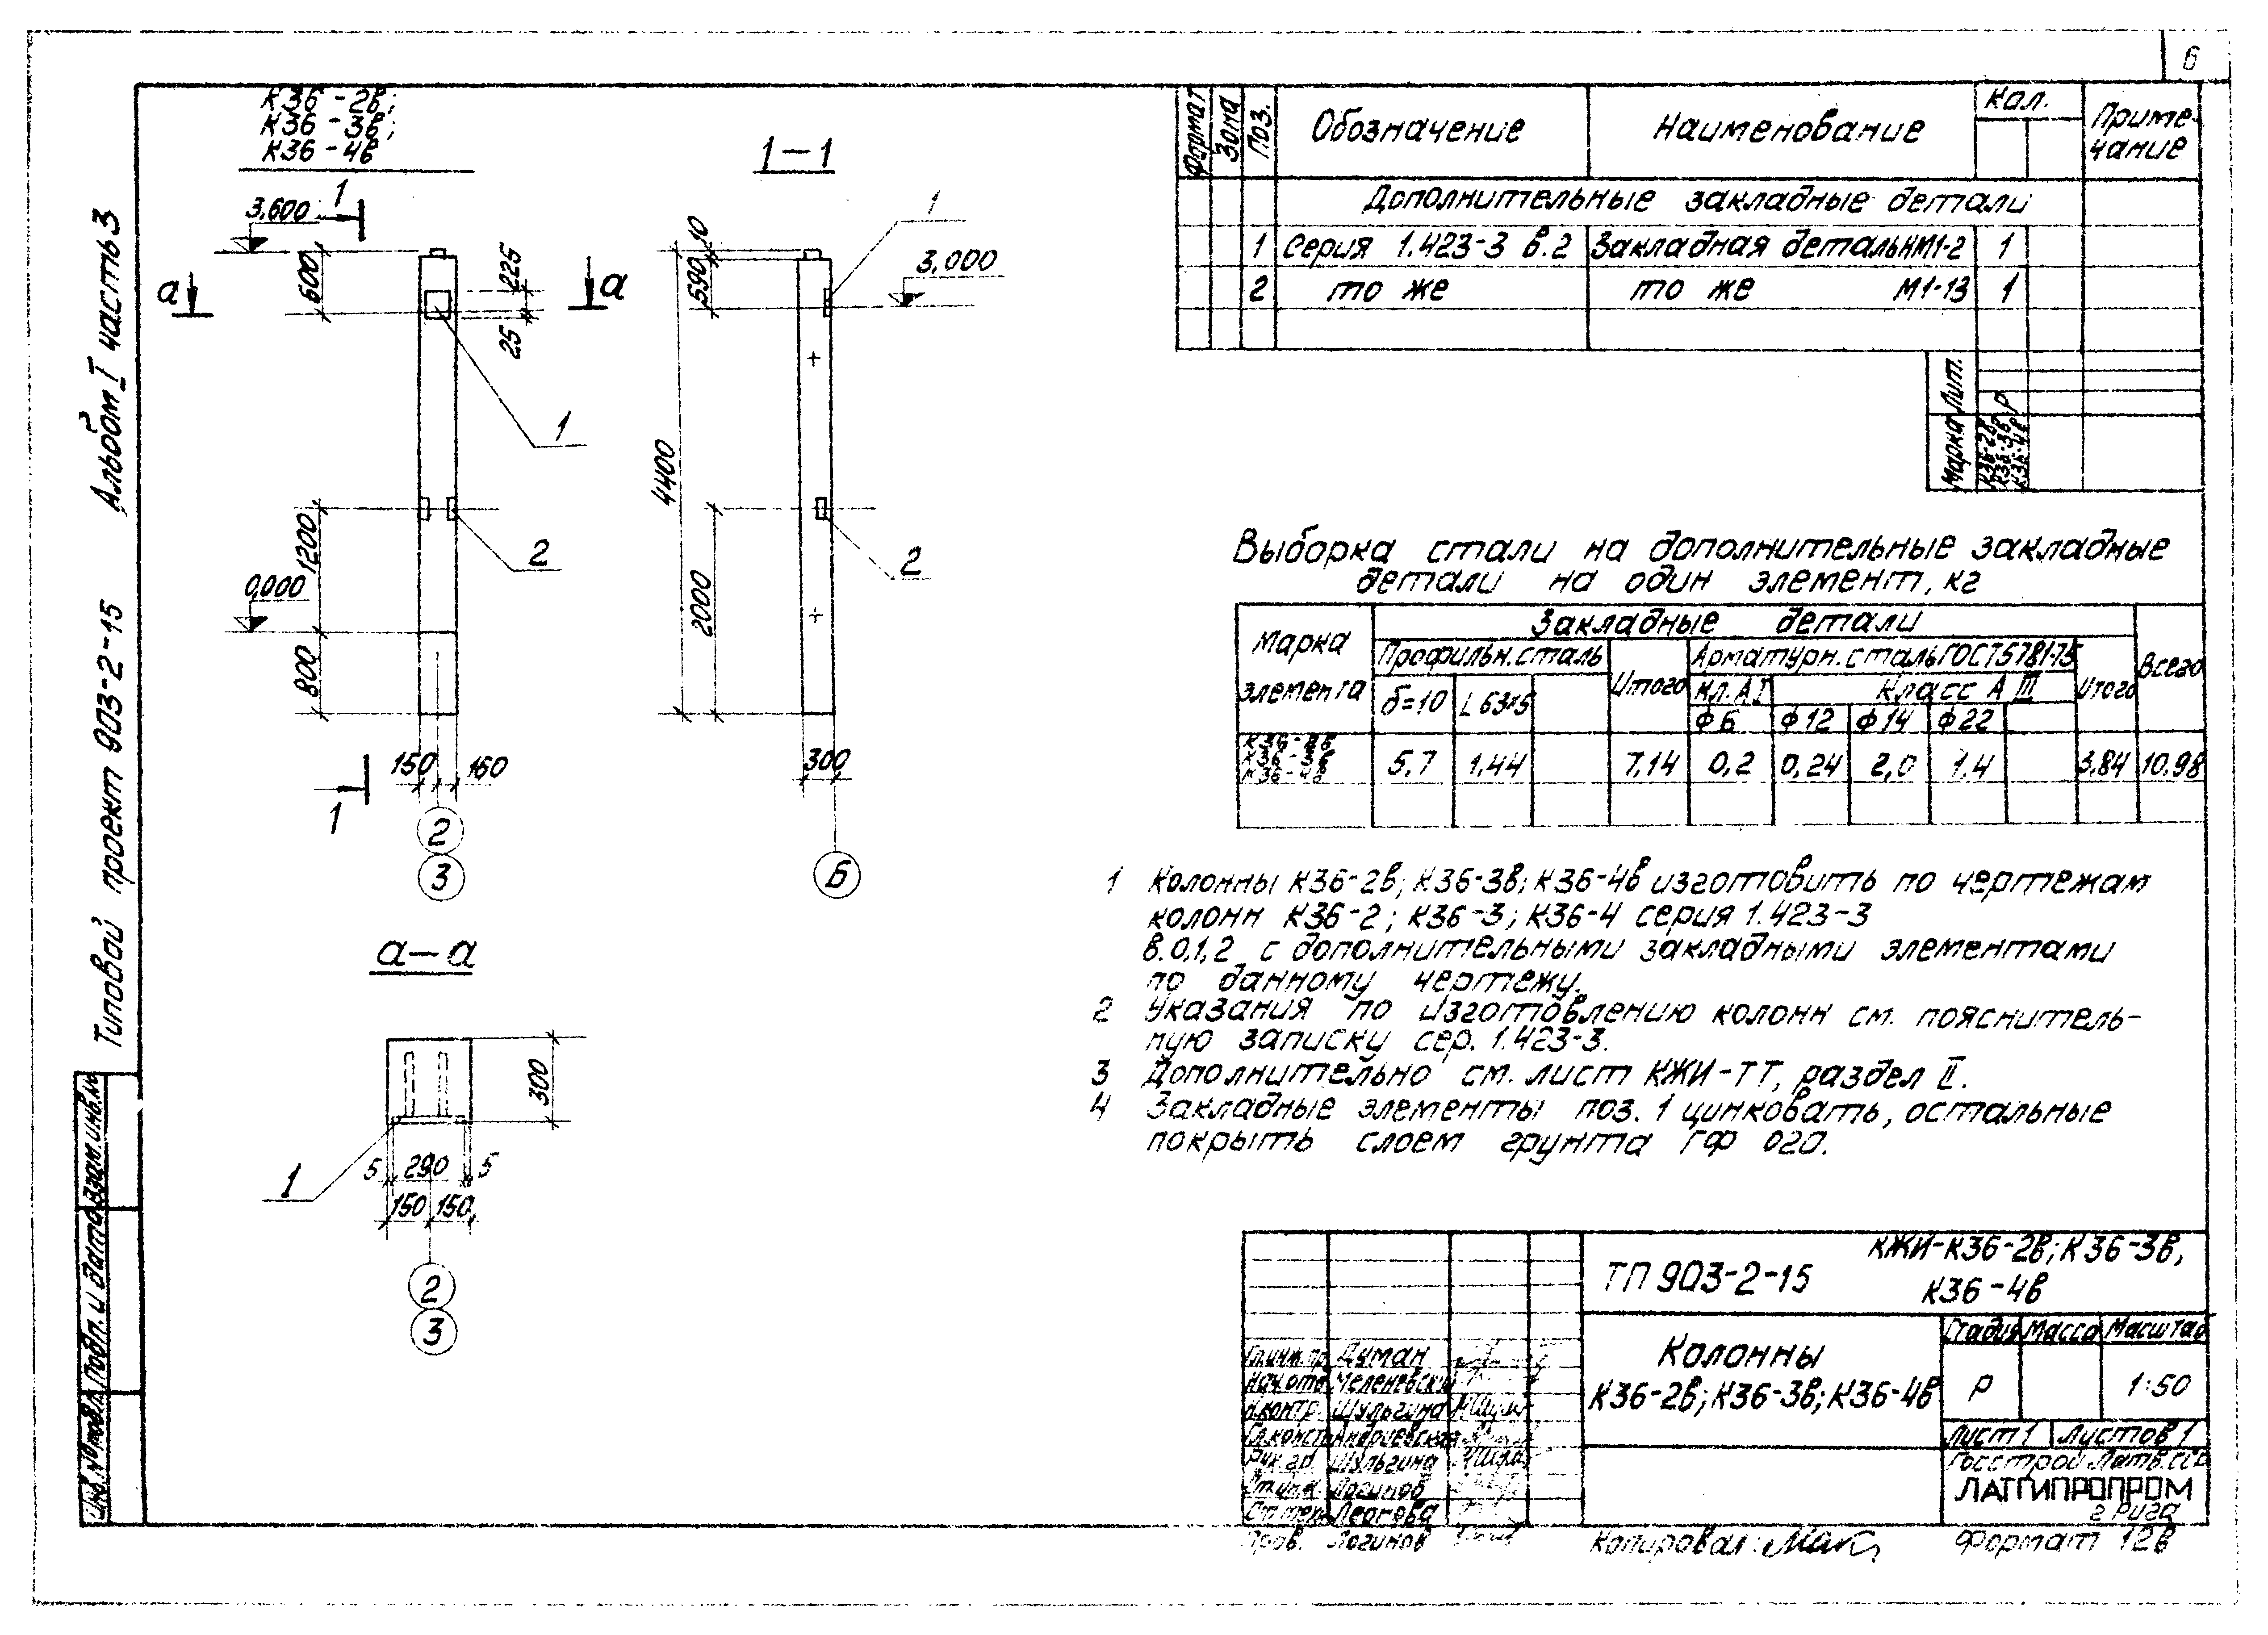 6
К36-2в;
К36-3в;
К36-4в
1-1
1
3.600
600
225
25
а
а
1
1200
2
0,000
800
150
160
1
2
3
10
590
1
3.000
4400
2000
2
300
Б
а-а
300
5 290 5
150 150
1
2
3
Альбом I часть 3
Типовой проект 903-2-15
Взам.инв.№
Подп. и дата
Инв.№ подл.
Формат
Зона
Поз.
Обозначение
Наименование
Кол.
Приме-
чание
Дополнительные закладные детали
1 Серия 1.423-3 в.2 Закладная деталь НМ1-2 1
2 то же то же М1-13 1
Лит.
Р
Марка
К36-2в
К36-3в
К36-4в
Выборка стали на дополнительные закладные
детали на один элемент, кг
Марка
элемента
Закладные детали
Всего
Профильн.сталь
Итого
Арматурн.сталь ГОСТ5781-75
Итого
δ=10
L 63×5
Кл.АI
Класс А III
Ф6 Ф12 Ф14 Ф22
К36-2в
К36-3в
К36-4в
5,7 1,44 7,14 0,2 0,24 2,0 1,4 3,84 10,98
1 Колонны К36-2в; К36-3в; К36-4в изготовить по чертежам
колонн К36-2; К36-3; К36-4 серия 1.423-3
в.0,1,2 с дополнительными закладными элементами
по данному чертежу.
2 Указания по изготовлению колонн см. пояснитель-
ную записку сер. 1.423-3.
3 Дополнительно см. лист КЖИ-ТТ, раздел II.
4 Закладные элементы поз. 1 цинковать, остальные
покрыть слоем грунта ГФ 020.
ТП 903-2-15
КЖИ-К36-2в; К36-3в,
К36-4в
Колонны
К36-2в; К36-3в; К36-4в
Стадия Масса Масштаб
Р 1:50
Лист 1 Листов 1
Госстрой Латв.ССР
ЛАТГИПРОПРОМ
г Рига
Гл.инж.пр. Думан
Нач.отд
Н.контр. Шульгина
Гл.констр Андриевская
Рук.гр. Шульгина
Ст.инж. Логинов
Ст.техн.
Пров. Логинов
Копировал:
Формат 12в